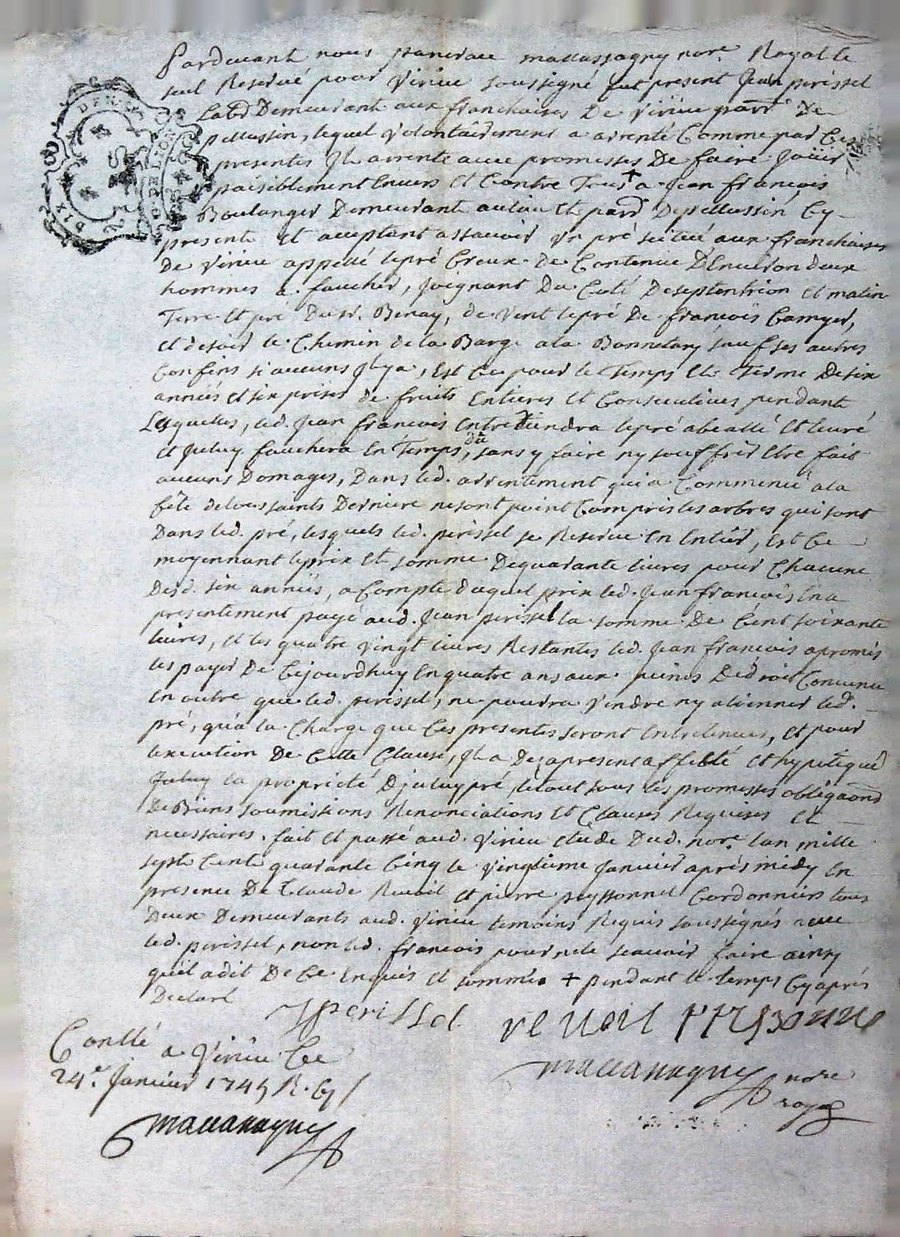 Pardevant nous pancrace mattassagny nore. Royal le
seul Reservé pour Virieu soussigné fut present Jean perissel
Labr. Demeurant aux franchises De Virieu parr. De
pellussin, lequel Volontairement a arrenté Comme par Ces
presentes Il arrente avec promesses De faire Jouir
paisiblement Envers Et Contre Tous + a Jean francois
Boulanger Demeurant au lieu Et parr. De pellussin Cy
present Et acceptant assavoir Un pré scitué aux franchises
De Virieu appellé le pré Creux De Contenue D'Environ deux
hommes a faucher, Joignant Du Coté De septentrion Et matin
Terre Et pré Du sr. Benay, de Vent le pré De francois
Et de soir le Chemin de la Barge a la Bonnetary sauf ses autres
Confins si aucuns Il y a, Est Ce pour le Temps Et Terme De six
années Et six prises de fruits Entieres Et Consecutives pendant
Lesquelles, led. Jean francois Entretiendra le pré
Et Iceluy fauchera En Temps du, sans y faire ny souffrir Etre fait
aucuns Domages, Dans led. arrentement qui a Commencé a la
fête de toussaints Derniere ne sont point Compris les arbres qui sont
Dans led. pré, lesquels led. perissel se Reserve En Entier, Est Ce
moyennant le prix Et somme De quarante livres pour Chacune
Desd. six années, a Compte duquel prix led. Jean francois En a
presentement payé aud. Jean perissel la somme De Cent soixante
livres, Et les quatre Vingt livres Restantes led. Jean francois a promis
les payer De Cejourdhuy En quatre ans aux peines De droit Convenu
En outre que led. perissel, ne pourra Vendre ny alienner led.
pré, qu'a la Charge que Ces presentes seront Entretenues, Et pour
l'execution De Cette Clause, Il a Dez a present affecté Et hypotequé
Iceluy la propriété D'iceluy pré, le tout sous les promesses obligaons
De Biens soumissions Renonciations Et Clauses Requises Et
necessaires. fait Et passé aud. Virieu Etude Dud. nore. lan mille
sept Cents quarante Cinq le Vingtieme Janvier apres midy En
presence De Claude Reveil Et pierre peyssonnel Cordonniers tous
Deux Demeurants aud. Virieu temoins Requis soussignés avec
led. perissel, non led. francois pour ne le scavoir faire ainsy
quil a dit De Ce Enquis Et sommés + pendant le temps Cy apres
Declaré
J perissel reveil
nore
royal
Conllé
a Virieu Ce
24e. Janvier 1745 R.